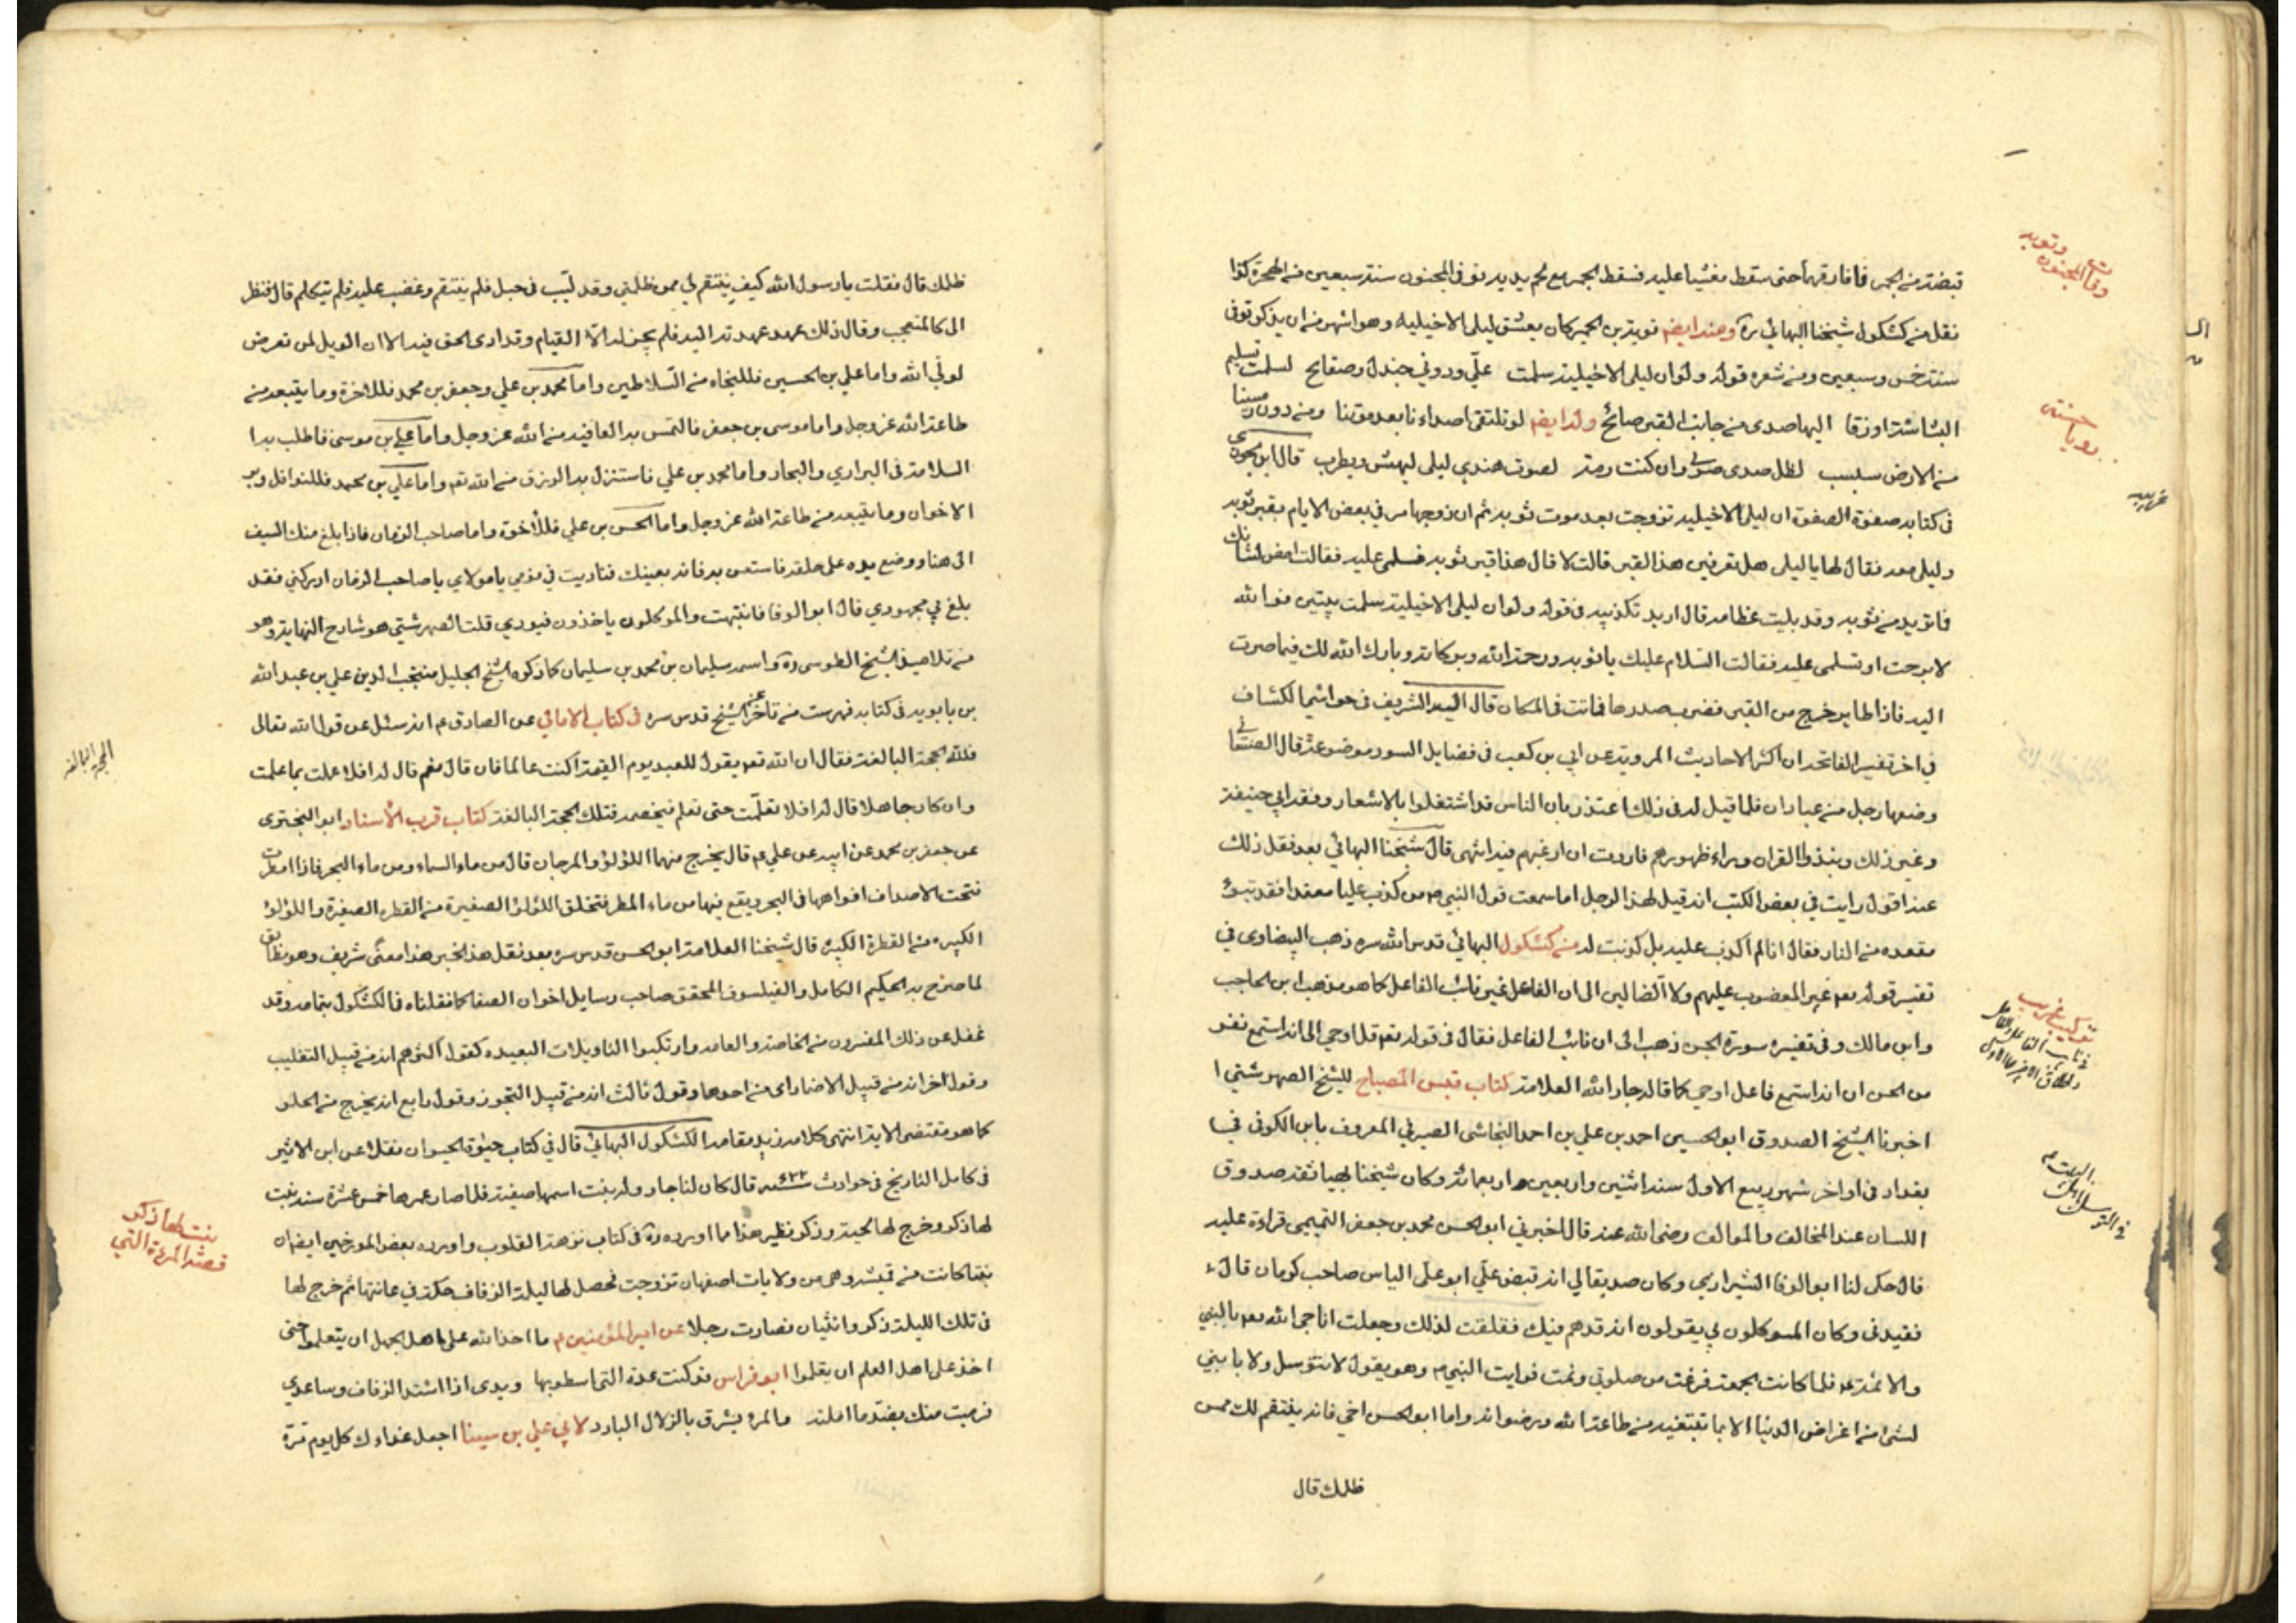 قبضته من الجمر فما فارقها حتى سقط مغشيا عليه فسقط الجمر مع لحم يديه توفى المجنون سنة سبعين من الهجرة كذا
نقل من كشكول شيخنا البهائي ره ومنه ايضا توبة بن الحمير كان يعشق ليلى الاخيلية وهو اشهر من ان يذكر توفى
سنة خمس وسبعين ومن شعره قوله ولو ان ليلى الاخيلية سلمت علّي ودوني جندل وصفايح لسلمت تسليم
البشاشة او زقا اليها صدى من جانب القبر صائح وله ايضا لو تلتقى اصداءنا بعد موتنا ومن دون رمسينا
من الارض سبسب لظل صدى صوتي وان كنت رمة لصوت صدى ليلى يهش ويطرب قال ابن
فى كتابه صفوة الصفوة ان ليلى الاخيلية تزوجت بعد موت توبة ثم ان زوجها مر في بعض الايام بقبر توبة
وليلى معه فقال لها يا ليلى هل تعرفين هذا القبر قالت لا قال هذا قبر توبة فسلمى عليه فقالت امض لشانك
فما تريد من توبة وقد بليت عظامه قال اريد تكذيبه فى قوله ولو ان ليلى الاخيلية سلمت بيتين فوالله
لا برحت او تسلمى عليه فقالت السّلام عليك يا توبة ورحمة الله وبركاته وبارك الله لك فيما صرت
اليه فاذا طاير خرج من القبر فضرب صدرها فماتت فى المكان قال السيد الشريف فى حواشي الكشاف
في اخر تفسير الفاتحة ان اكثر الاحاديث المروية عن ابي بن كعب فى فضايل السور موضوعة قال الصنعاني
وضعها رجل من عبادان فلما قيل له فى ذلك اعتذر بان الناس قد اشتغلوا بالاشعار وفقه ابي حنيفة
وغير ذلك ونبذوا القران وراء ظهورهم فاردت ان ارغبهم فيه انتهى قال شيخنا البهائي بعد نقل ذلك
عنه اقول رايت في بعض الكتب انه قيل لهذا الرجل اما سمعت قول النبي ص من كذب عليا معتمدا فقد تبوء
مقعده من النار فقال انا لم اكذب عليه بل كذبت له من كشكول البهائي قدس الله سره ذهب البيضاوى في
تفسير قوله تعم غير المغضوب عليهم ولا الضالين الى ان الفاعل غير نائب الفاعل كما هو مذهب ابن الحاجب
وابن مالك وفى تفسيره سورة الجن ذهب الى ان نائب الفاعل فقال فى قوله تعم قل اوحي الى انه استمع نفر
من الجن ان انه استمع فاعل اوحي كما قاله جار الله العلامة كتاب قبس المصباح للشيخ الصهرشتي
اخبرنا الشيخ الصدوق ابو الحسين احمد بن علي بن احمد النجاشى الصيرفي المعروف بابن الكوفى
بغداد فى اواخر شهر ربيع الاول سنة اثنتين واربعين واربعمائة وكان شيخنا بهيا ثقة صدوق
اللسان عند المخالف والموالف رضى الله عنه قال اخبرني ابو الحسن محمد بن جعفر التميمي قراءة عليه
قال حكى لنا ابو الوفا الشيرازي وكان صديقا لي انه قبض علّي ابو علي الياس صاحب كرمان قال
فقيدنى وكان الموكلون بي يقولون انه قد هم فيك فقلقت لذلك وجعلت اناجى الله تعم بالنبي
والائمة ع فلما كانت الجمعة فرغت من صلوتى ونمت فرايت النبي ص وهو يقول لا تتوسل ولا بابني
لشئ من اغراض الدنيا الا بما تبتغيه من طاعة الله ورضوانه واما ابو الحسن اخي فانه ينتقم لك ممن
ظلمك قال
ظلمك قال فقلت يا رسول الله كيف ينتقم لي ممن ظلمني وقد لبّب فى حبل فلم ينتقم وغضب عليه فلم يتكلم قال فنظر
الى كالمتعجب وقال ذلك عهد عهدته اليه فلم يجز له الا القيام وقد ادى الحق فيه الا ان الويل لمن تعرض
لولي الله واما علي بن الحسين فللنجاه من السّلاطين واما محمد بن علي وجعفر بن محمد فللاخرة وما يتبعه من
طاعة الله عز وجل واما موسى بن جعفر فالتمس به العافية من الله عز وجل واما علي بن موسى فاطلب به
السلامة فى البراري والبحار واما محمد بن علي فاستنزل به الرزق من الله تعم واما علي بن محمد فللنوافل وبر
الاخوان وما يتبعه من طاعة الله عز وجل واما الحسن بن علي فللآخرة واما صاحب الزمان فاذا بلغ منك السيف
الى هنا ووضع يده على حلقه فاستعن به فانه يعينك فناديت في نومي يا مولاي يا صاحب الزمان ادركني فقد
بلغ بي مجهودي قال ابو الوفا فانتبهت والموكلون ياخذون قيودي قلت الصهرشتي هو شارح النهاية وهو
من تلاميذ الشيخ الطوسى ره واسمه سليمان بن محمد بن سليمان كما ذكره الشيخ الجليل منتجب الدين علي بن عبد الله
بن بابويه فى كتابه فهرست من تاخر عن الشيخ قدس سره فى كتاب الامالي عن الصادق ع انه سئل عن قول الله تعالى
فلله الحجة البالغة فقال ان الله تعم يقول للعبد يوم القيمة اكنت عالما فان قال نعم قال له افلا عملت بما علمت
وان كان جاهلا قال له افلا تعلّمت حتى تعلم فيخصمه فتلك الحجة البالغة كتاب قرب الأسناد ابو البختري
عن جعفر بن محمد عن ابيه عن علي ع قال يخرج منهما اللؤلؤ والمرجان قال من ماء السماء ومن ماء البحر فاذا امطرت
فتحت الاصداف افواهها فى البحر ويقع فيها من ماء المطر فتخلق اللؤلؤ الصغيرة من القطرة الصغيرة واللؤلؤ
الكبيره من القطرة الكبيره قال شيخنا العلامة ابو الحسن قدس سره بعد نقل هذا الخبر هذا معنى شريف وهو مطابق
لما صرح به الحكيم الكامل والفيلسوف المحقق صاحب رسايل اخوان الصفا كما نقلناه فى الكشكول بتمامه وقد
غفل عن ذلك المفسرون من الخاصة والعامه وارتكبوا التاويلات البعيده كقول اكثرهم انه من قبيل التغليب
وقول اخر انه من قبيل الاضمار اى من احدهما وقول ثالث انه من قبيل التجوز وقول رابع انه يخرج من الحلو
كما هو مقتضى الاية انتهى كلامه زيد مقامه الكشكول البهائي قال في كتاب حيوة الحيوان نقلا عن ابن الاثير
فى كامل التاريخ فى حوادث سنه ٦٢٣ قال كان لنا جار وله بنت اسمها صفية فلما صار عمرها خمس عشرة سنه نبت
لها ذكر وخرج لها لحية وذكر نظير هذا ما اورده ره فى كتاب نزهة القلوب واورده بعض المورخين ايضا ان
بنتا كانت من قمشه وهى من ولايات اصفهان تزوجت فحصل لها ليلة الزفاف حكة في عانتها ثم خرج لها
فى تلك الليلة ذكر وانثيان فصارت رجلا عن امير المؤمنين ع ما اخذ الله على اهل الجهل ان يتعلموا حتى
اخذ على اهل العلم ان يعلموا ابو فراس قد كنت عدة التى اسطو بها ويدى اذا اشتد الزمان وساعدي
فرميت منك بضدّ ما املته والمرء يشرق بالزلال البارد لابي علي بن سينا اجعل غذاءك كل يوم مرة
وفات المجنون وتوبه
حسنتى
غريبه
تركيب غريب
في التوسل
الحجة البالغه
بنت طلع ذكر
قصة المرءة التي